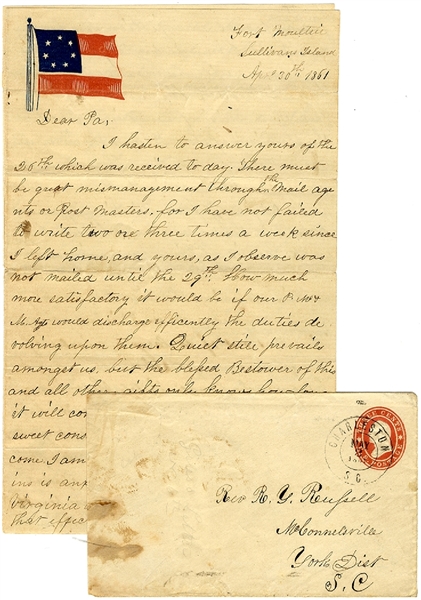 Fort Moultrie
Sullivans Island
April 30th 1861
Dear Pa,
I hasten to answer yours of the
26th which was received to day. There must
be great mismanagement through the Mail age
nts or Post Masters, for I have not failed
to write two ore three times a week since
I left home, and yours, as I observe was
not mailed until the 29th. How much
more satisfactory it would be if our P. M &
M. Agts would discharge efficently the duties de
volving upon them. Quiet still prevails
amongst us, but the blessed Bestower of this
and all other gifts only knows how long
it will con
sweet cons
come. I am
ins is anx
Virginia
that effic
CHARLESTON
MAY
S.C.
THREE CENTS
Rev R. Y. Russell
McConnelsville
York Dist
S. C